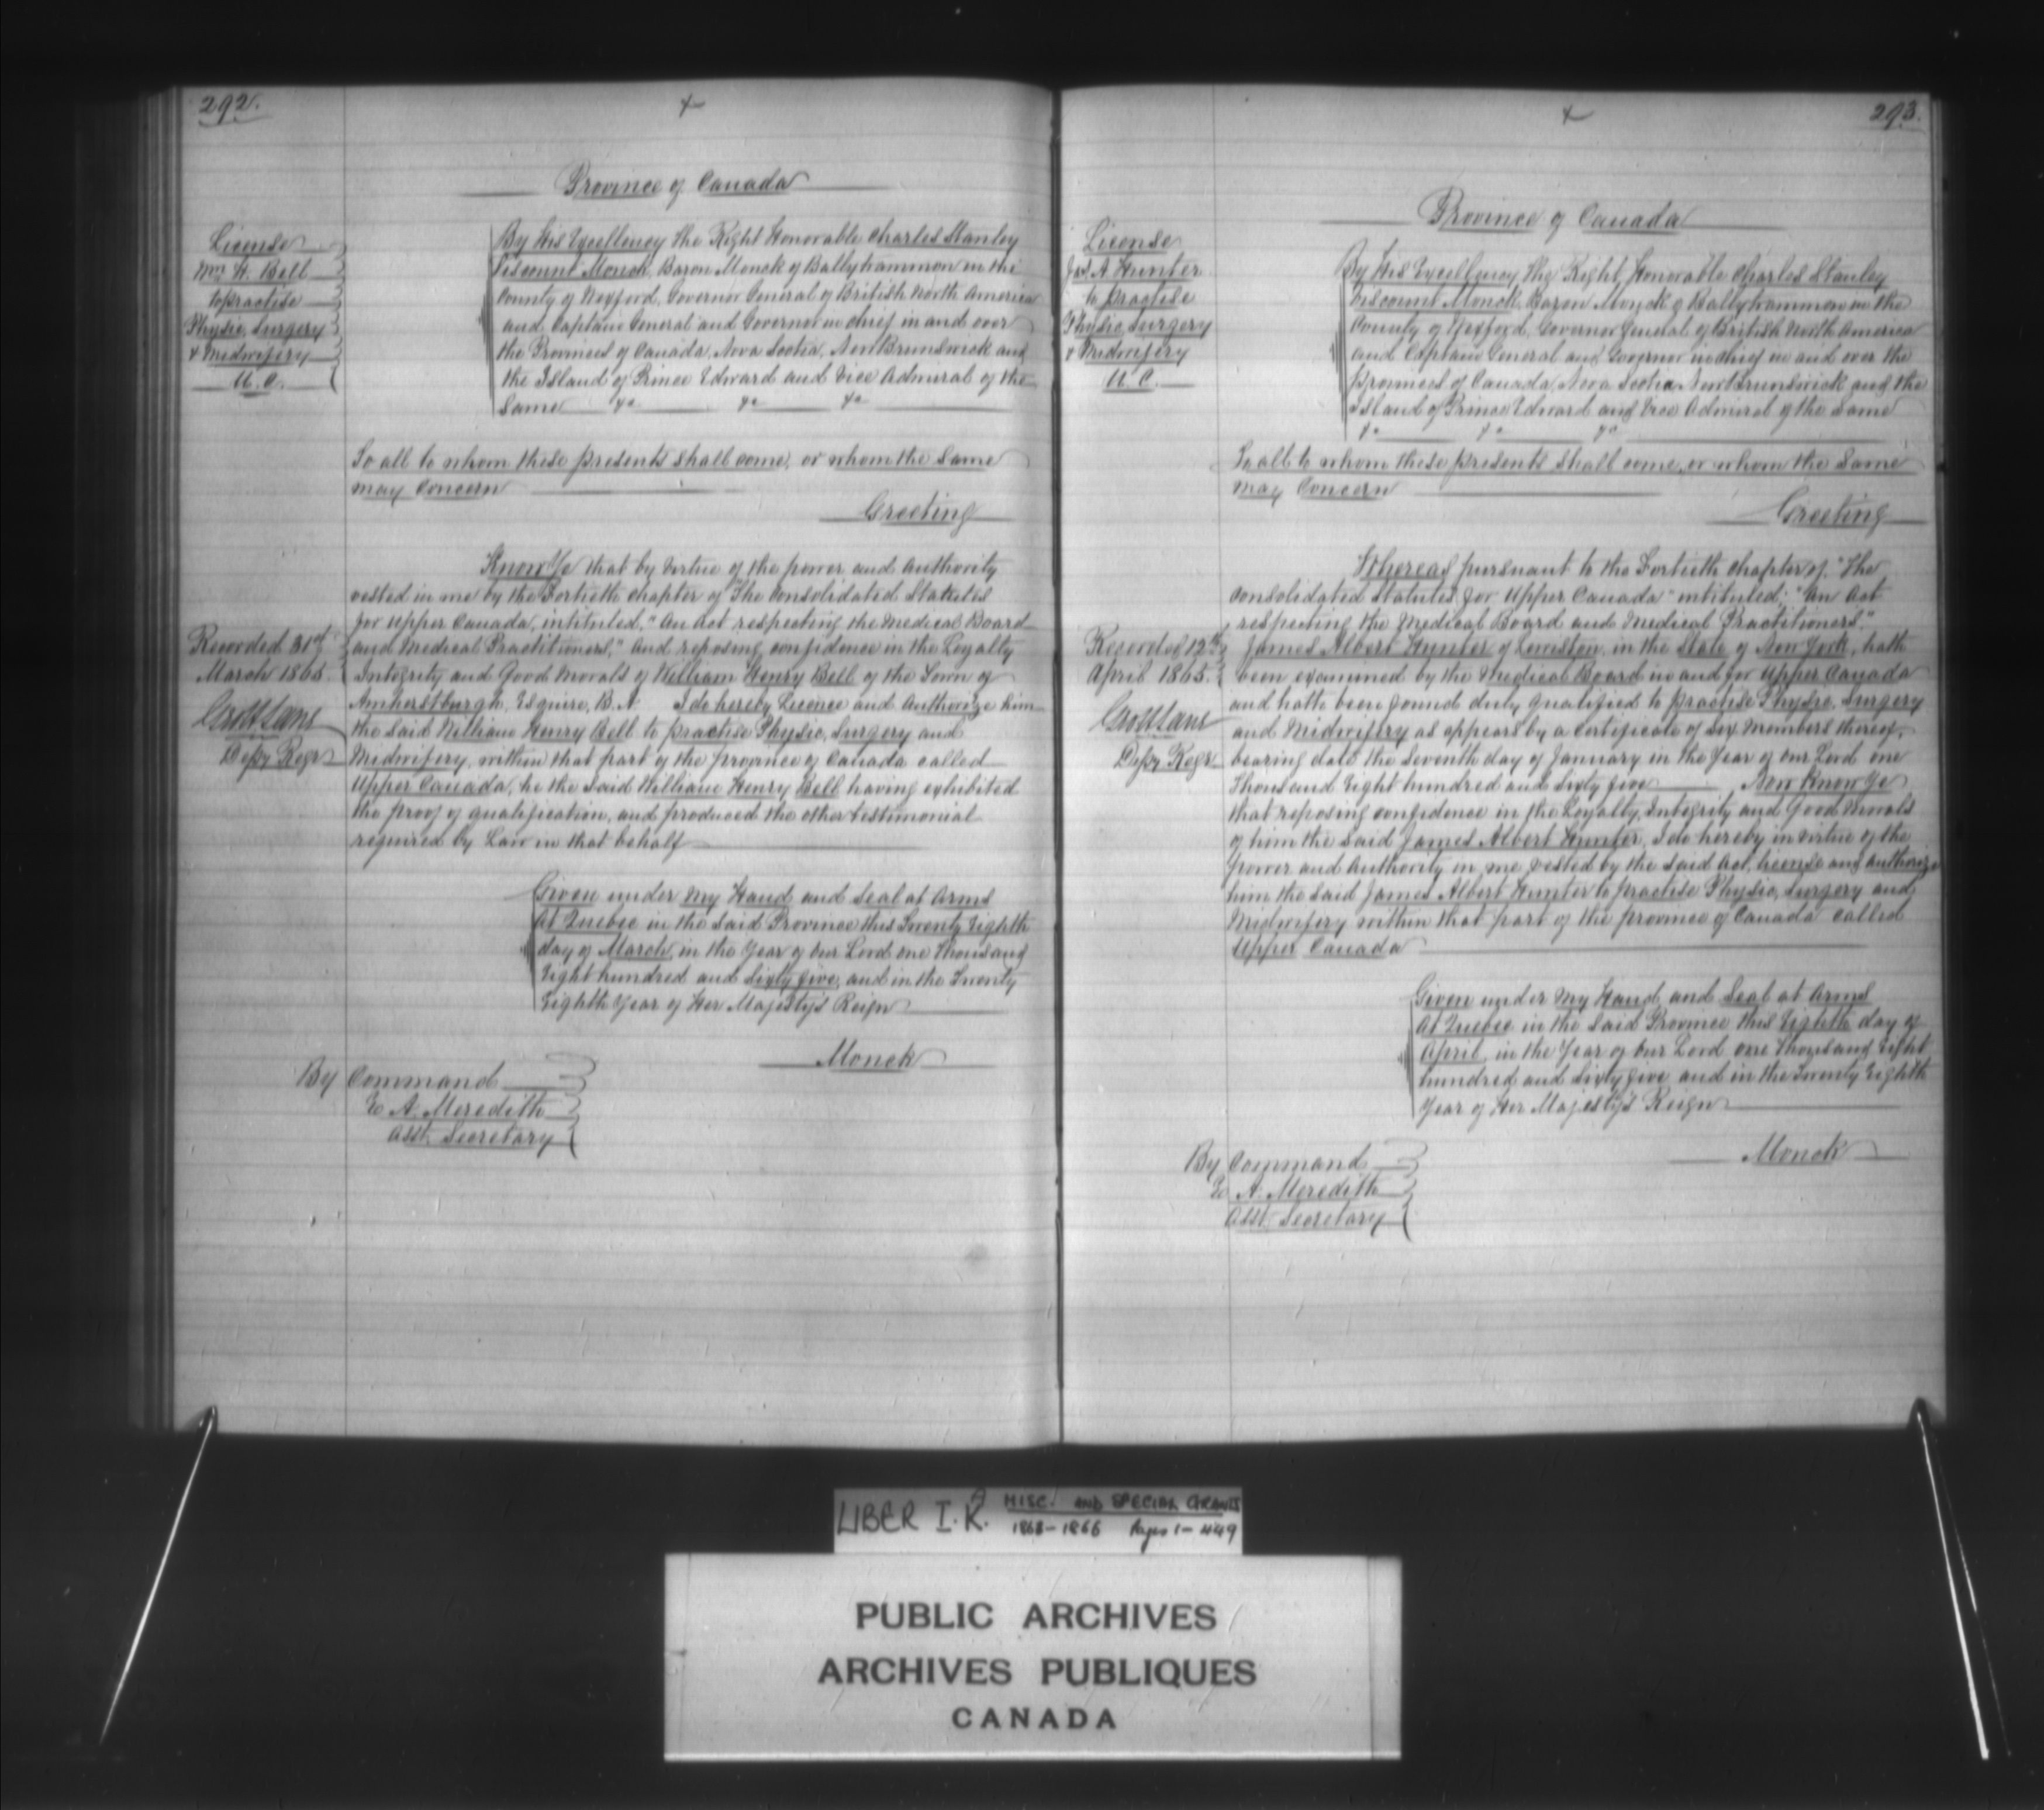 292.
+
Province of Canada
License
Wm H. Bell
to practise
Physic, Surgery
& Midwifery
U. C.
By His Excellency The Right Honorable Charles Stanley
Viscount Monck, Baron Monck of Ballytrammon in the
County of Wexford, Governor General of British North America
and Captain General and Governor in chief in and over
the Provinces of Canada, Nova Scotia, New Brunswick and
the Island of Prince Edward and Vice Admiral of the
Same &c &c &c
To all to whom these presents shall come, or whom the Same
may Concern
Greeting
Know Ye that by virtue of the power and Authority
vested in me by the Fortieth chapter of The Consolidated Statutes
for Upper Canada, intituled, "An Act respecting the Medical Board
and Medical Practitioners," and reposing confidence in the Loyalty
Integrity and Good Morals of William Henry Bell of the Town of
Amherstburgh, Esquire, B.A I do hereby Licence and Authorize him
the said William Henry Bell to practise Physic, Surgery and
Midwifery, within that part of the province of Canada called
Upper Canada, he the said William Henry Bell having exhibited
the proof of qualification, and produced the other testimonial
required by Law in that behalf
Recorded 31st
March 1865.
Depy Regr
Given under my Hand and Seal at Arms
At Quebec in the said Province this Twenty Eighth
day of March, in the Year of Our Lord one thousand
Eight hundred and Sixty five, and in the Twenty
Eighth Year of Her Majesty's Reign
Monck
By Command
E A. Meredith
Asst. Secretary
293.
+
Province of Canada
License
Jas A Hunter
to practise
Physic, Surgery
& Midwifery
U. C.
By His Excellency The Right Honorable Charles Stanley
Viscount Monck, Baron Monck of Ballytrammon in the
County of Wexford, Governor General of British North America
and Captain General and Governor in chief in and over the
provinces of Canada, Nova Scotia, New Brunswick and the
Island of Prince Edward and Vice Admiral of the Same
&c &c &c
To all to whom these presents shall come, or whom the Same
may Concern
Greeting
Whereas pursuant to the Fortieth chapter of "The
Consolidated Statutes for Upper Canada" intituled; "An Act
respecting the Medical Board and Medical Practitioners,"
James Albert Hunter of Lewiston, in the State of New York, hath
been examined by the Medical Board in and for Upper Canada
and hath been found duly qualified to practise Physic, Surgery
and Midwifery as appears by a Certificate of Six Members thereof,
bearing date the Seventh day of January in the Year of our Lord one
Thousand Eight hundred and Sixty five Now Know Ye
that reposing confidence in the Loyalty, Integrity and Good Morals
of him the said James Albert Hunter, I do hereby in virtue of the
power and Authority in me vested by the said Act, license and authorize
him the said James Albert Hunter to practise Physic, Surgery and
Midwifery within that part of the province of Canada called
Upper Canada
Recorded 12th
April 1865.
Depy Regr
Given under my Hand and Seal at Arms
At Quebec in the said Province this Eighth day of
April, in the Year of Our Lord one thousand Eight
hundred and Sixty five and in the Twenty Eighth
Year of Her Majesty's Reign
Monck
By Command
E A. Meredith
Asst. Secretary
LIBER I. K. MISC. AND SPECIAL GRANTS
1863-1866 Pages 1-449
PUBLIC ARCHIVES
ARCHIVES PUBLIQUES
CANADA